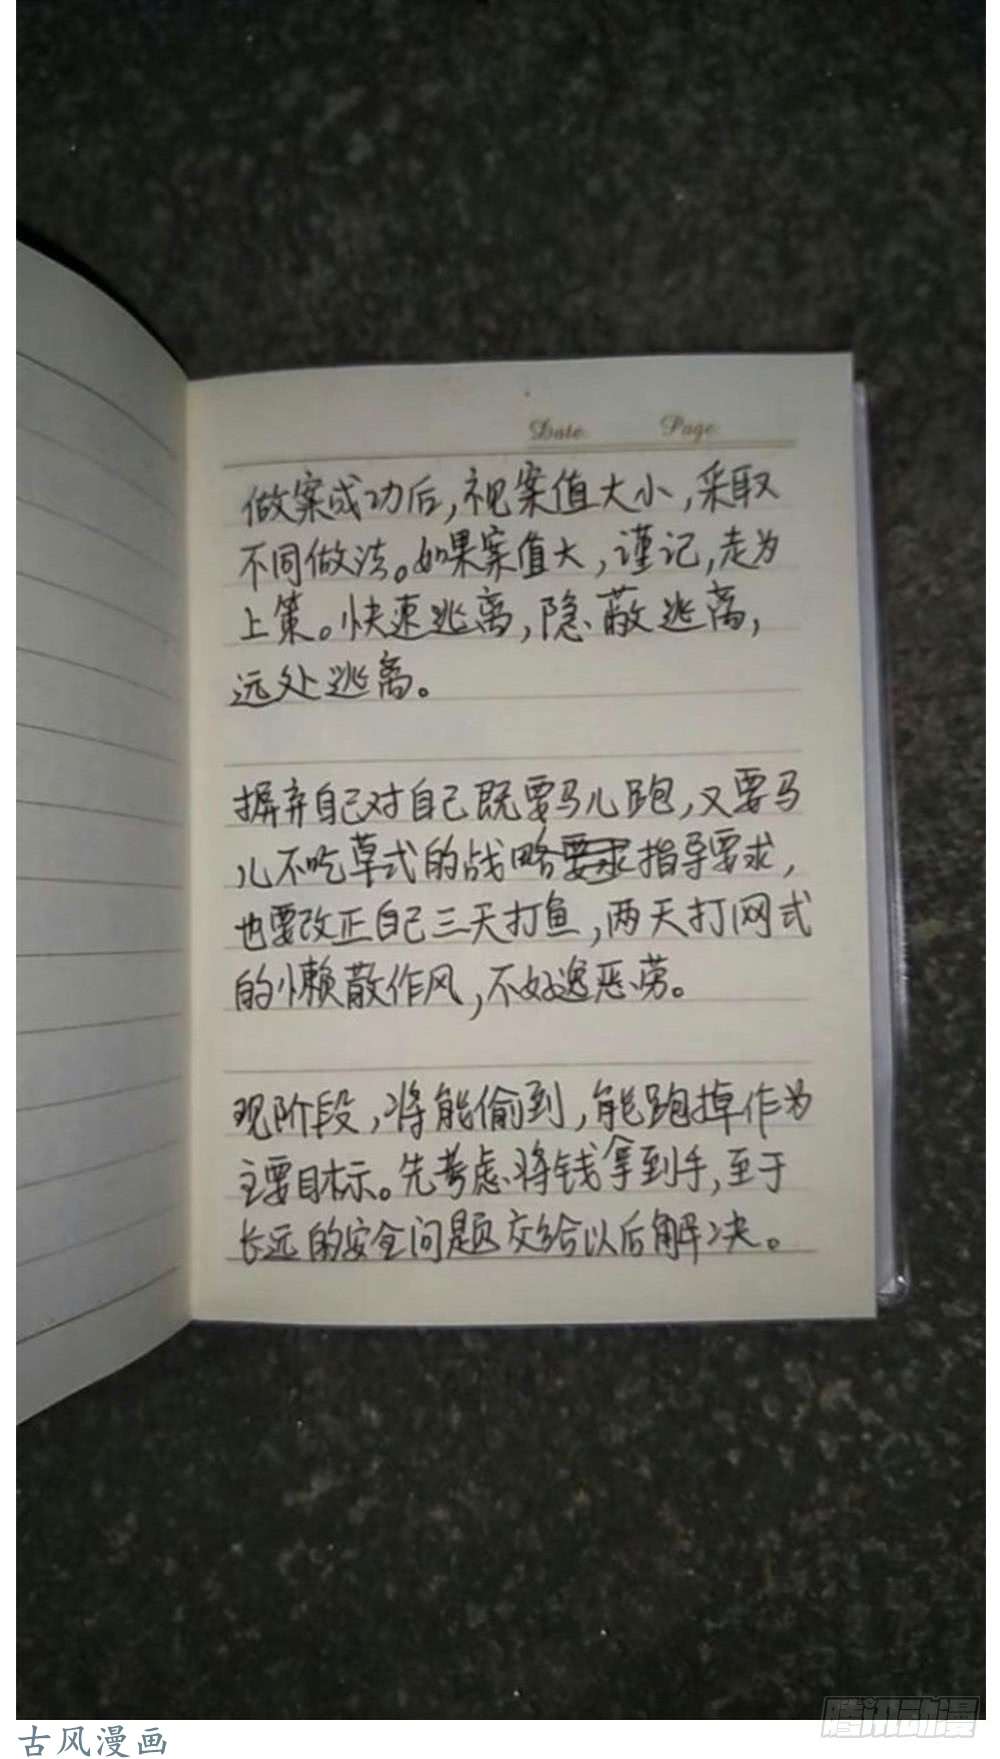 Date Page
做案成功后，视案值大小，采取
不同做法。如果案值大，谨记，走为
上策。快速逃离，隐蔽逃离，
远处逃离。
摒弃自己对自己既要马儿跑，又要马
儿不吃草式的战略要求指导要求，
也要改正自己三天打鱼，两天打网式
的懒散作风，不好逸恶劳。
现阶段，将能偷到，能跑掉作为
主要目标。先考虑将钱拿到手，至于
长远的安全问题交给以后解决。
腾讯动漫
古风漫画